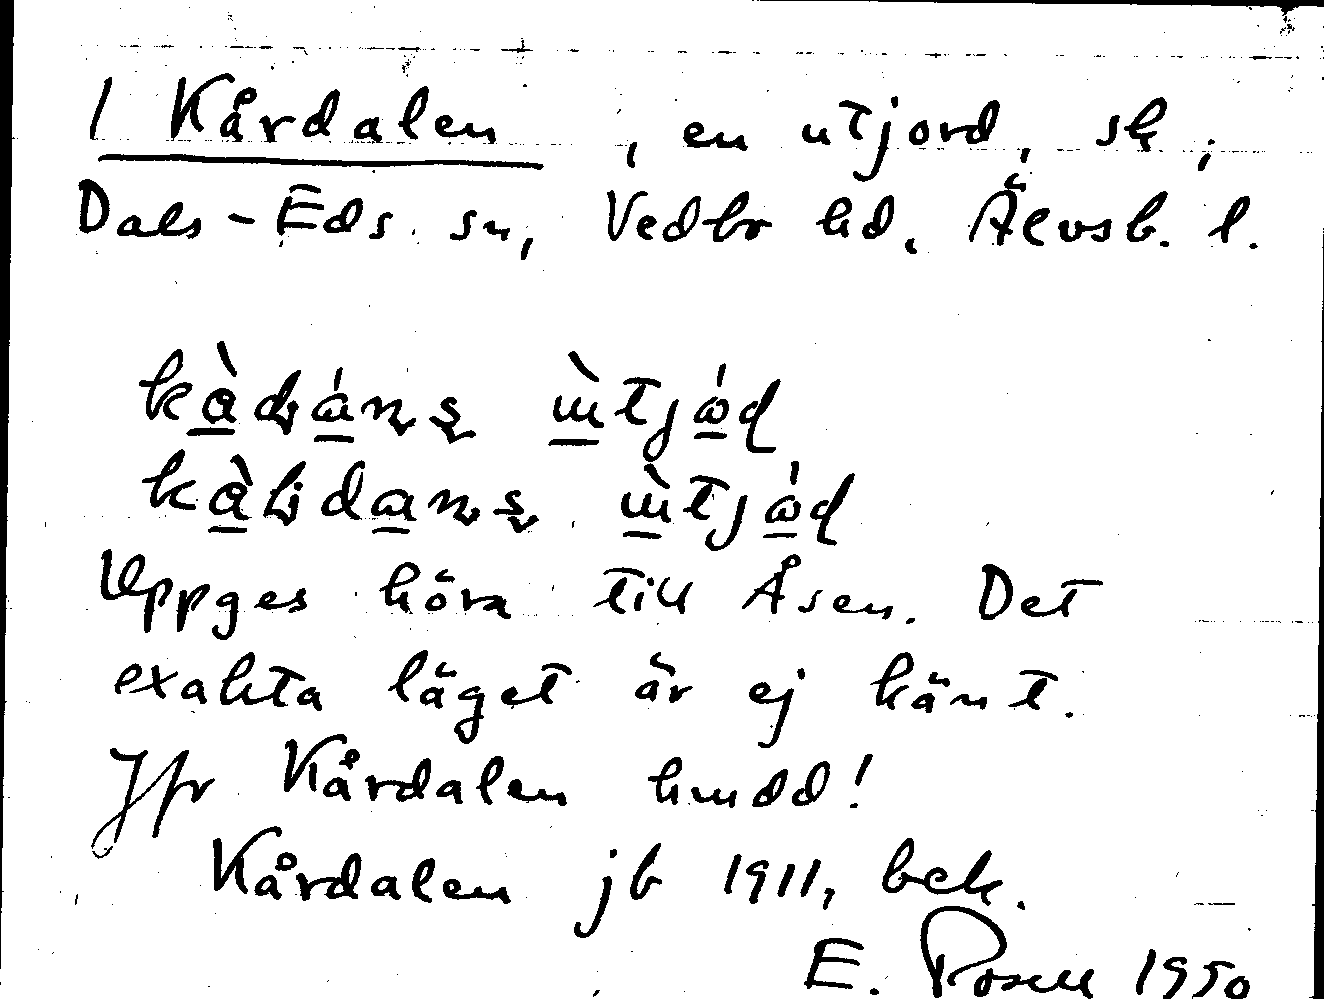 1 Kårdalen, en utjord, sk,
Dals-Eds. sn, Vedbo hd, Älvsb. l.
Uppges höra till Åsen. Det
exakta läget är ej känt.
Jfr Kårdalen hmdd!
Kårdalen jb 1911, bek.
E. Rosell 1950